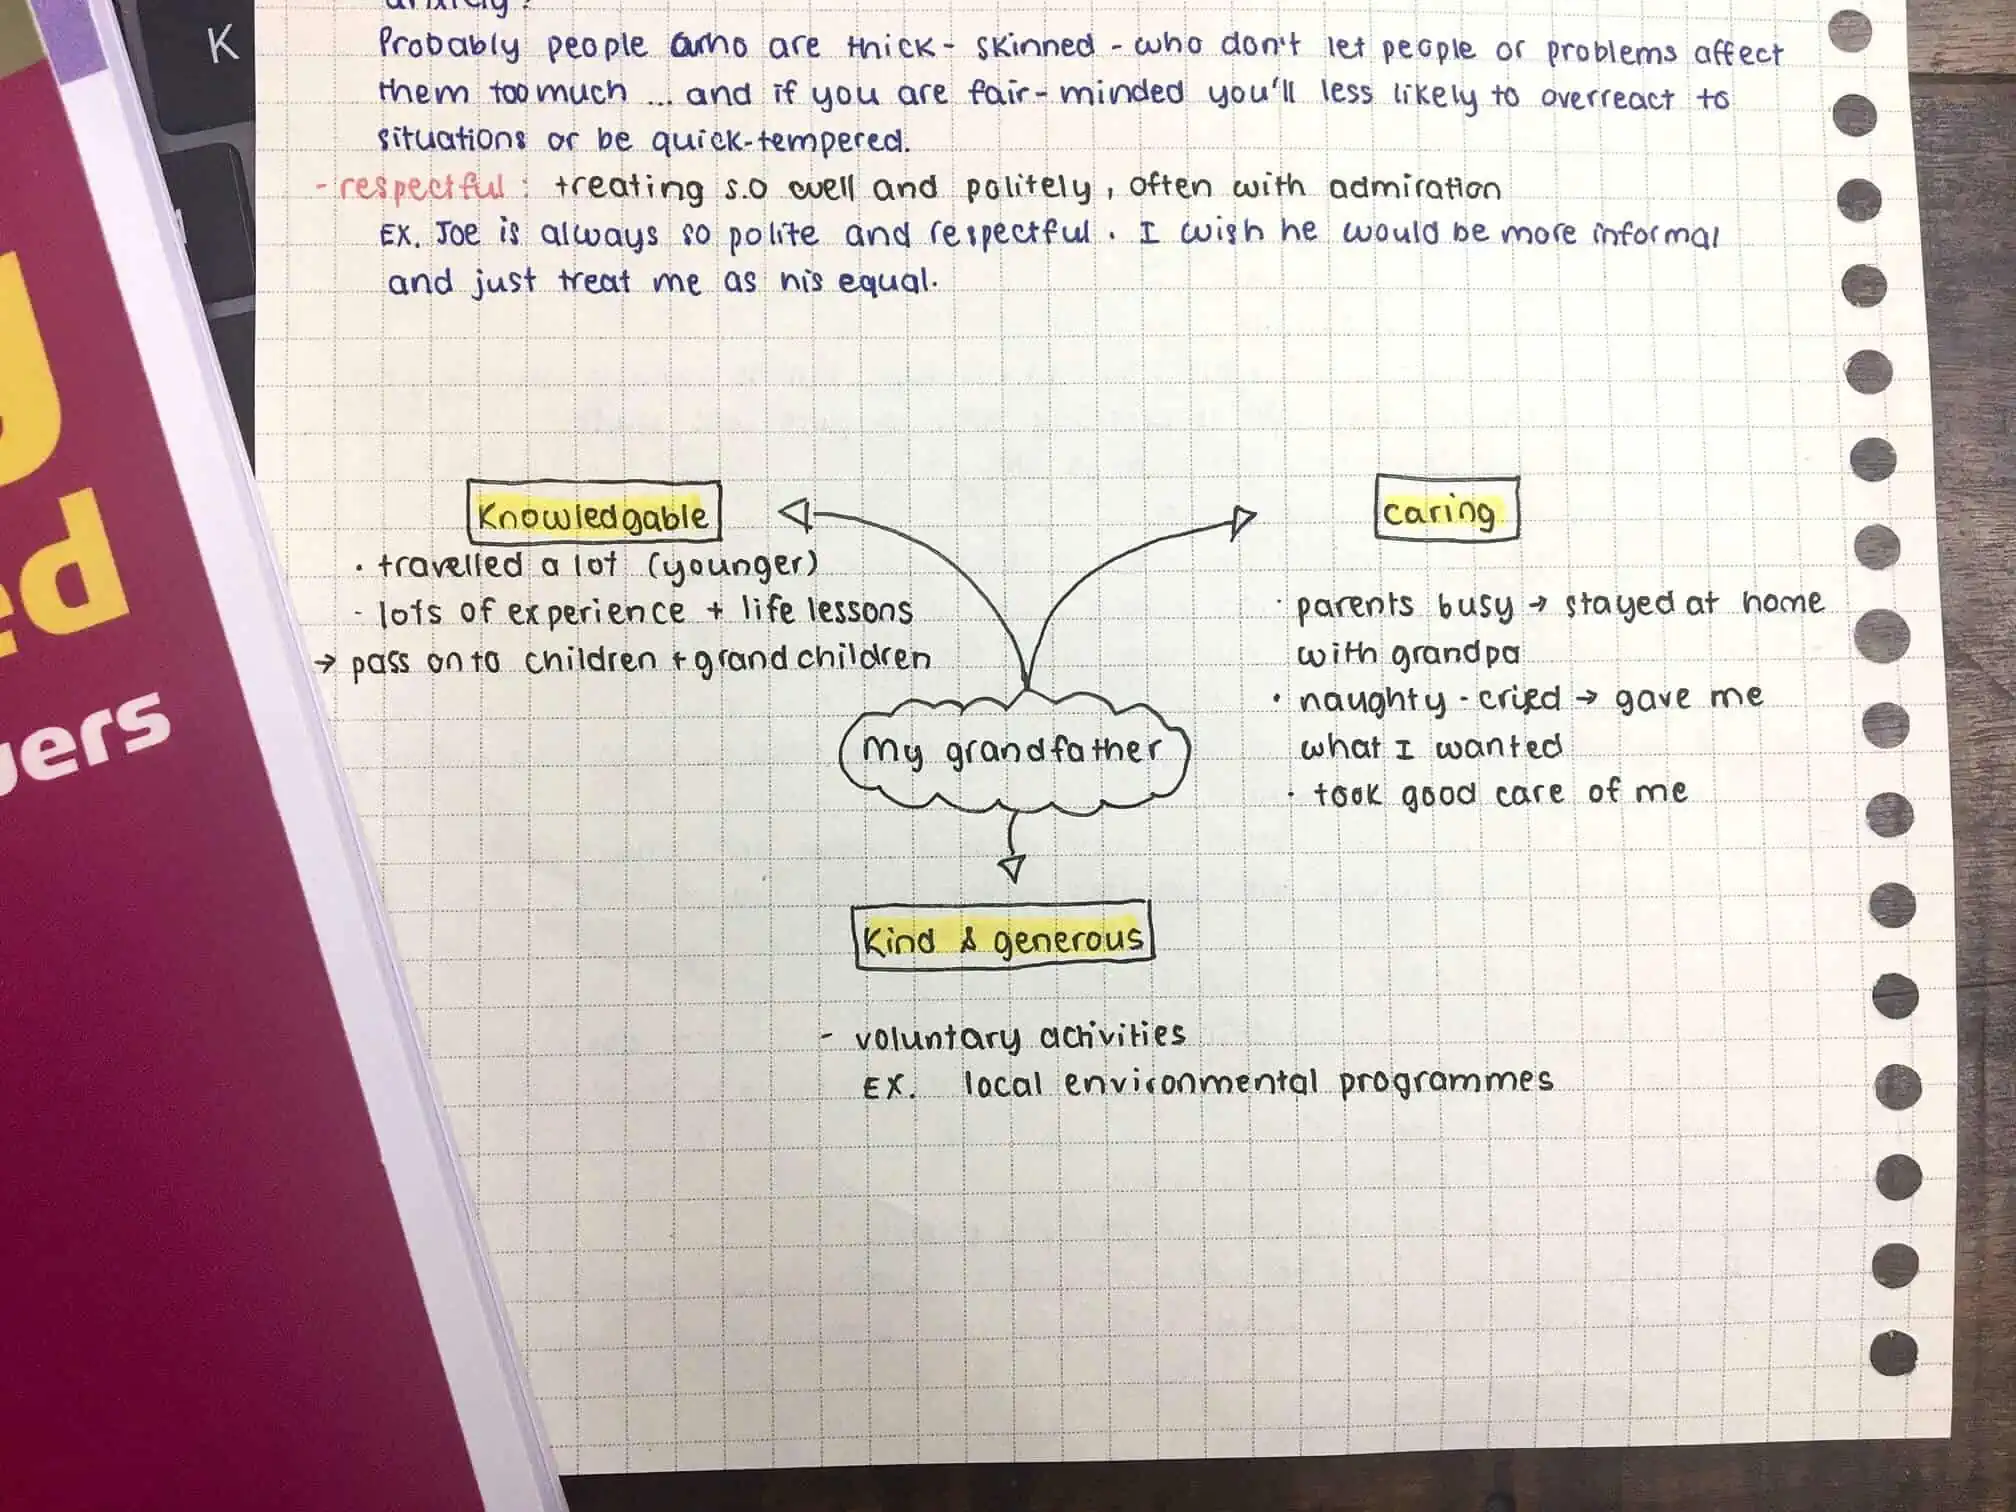 K
Probably people who are thick-skinned - who don't let people or problems affect
them too much ... and if you are fair-minded you'll less likely to overreact to
situations or be quick-tempered.
- respectful : treating s.o well and politely, often with admiration
EX. Joe is always so polite and respectful. I wish he would be more informal
and just treat me as his equal.
Knowledgable
· travelled a lot (younger)
- lots of experience + life lessons
→ pass on to children + grandchildren
caring
· parents busy → stayed at home
with grandpa
· naughty - cried → gave me
what I wanted
· took good care of me
My grandfather
Kind & generous
- voluntary activities
EX. local environmental programmes